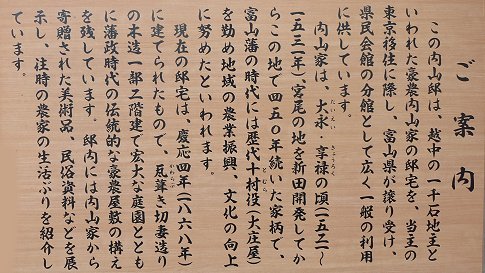 ご案内
この内山邸は、越中の一千石地主と
いわれた豪農内山家の邸宅を、当主の
東京移住に際し、富山県が譲り受け、
県民会館の分館として広く一般の利用
に供しています。
内山家は、大永・享禄の頃(一五二一～
一五三一年)、宮尾の地を新田開発してか
らこの地で四五〇年続いた家柄で、
富山藩の時代には歴代十村役(大庄屋)
を勤め地域の農業振興、文化の向上
に努めたといわれます。
現在の邸宅は、慶応四年(一八六八年)
に建てられたもので、瓦葺き切妻造り
の木造一部二階建て宏大な庭園ととも
に藩政時代の伝統的な豪農屋敷の構え
を残しています。邸内には内山家から
寄贈された美術品、民俗資料などを展
示し、往時の農家の生活ぶりを紹介し
ています。